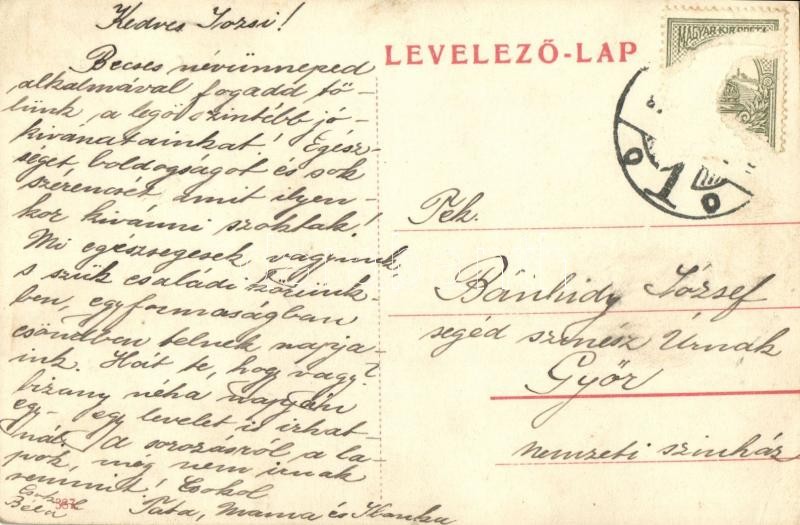 Kedves Jozsi!
Becses névünneped
alkalmával fogadd tő-
lünk a legöszintébb jó-
kivánatainkat! Egész-
séget, boldogságot és sok
szérencsét, amit ilyen-
kor kivánni szoktak!
Mi egészségesek vagyunk,
s szük családi körünk-
ben, egyformaságban
csöndben telnek napja-
ink. Hát te, hogy vagy?
bizany néha napján
egy-egy levelet is irhat-
nál. A sorozásról a la-
pok, még nem irnak
semmit! Csokol
Tata, Mama és Ilonka
Csokol
Béla
387
LEVELEZŐ-LAP
MAGYAR·KIR·POSTA
1
Tek.
Bánhidy József
segéd szinész Úrnak
Győr
nemzeti szinház